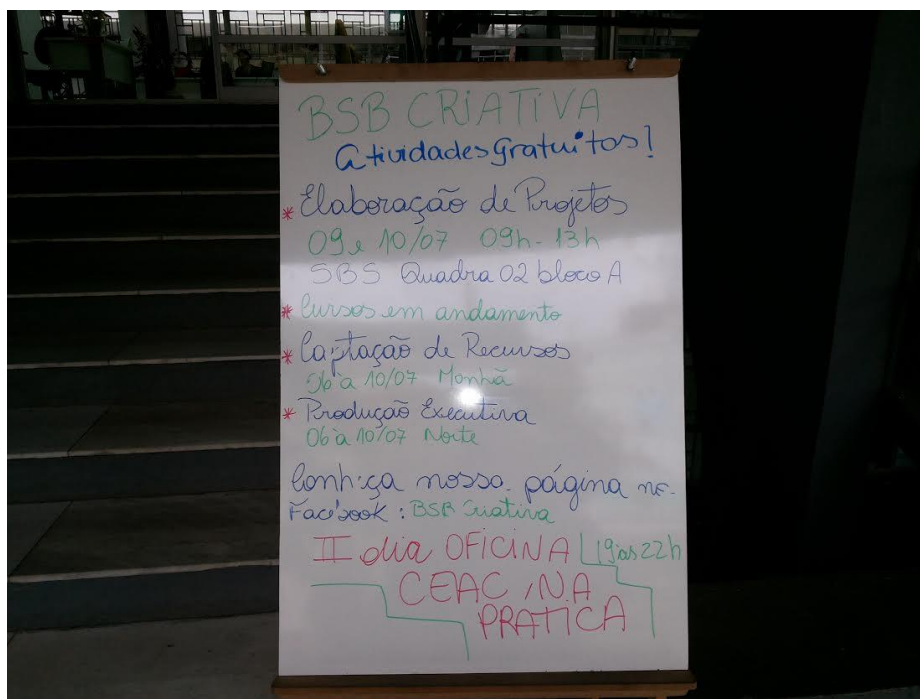 BSB CRIATIVA
Atividades gratuitas!
* Elaboração de Projetos
09 e 10/07 09h - 13h
SBS Quadra 02 bloco A
* Cursos em andamento
* Captação de Recursos
06 à 10/07 Manhã
* Produção Executiva
06 à 10/07 Noite
Conheça nossa página no
Facebook : BSB Criativa
II dia OFICINA 19 às 22h
CEAC NA
PRATICA